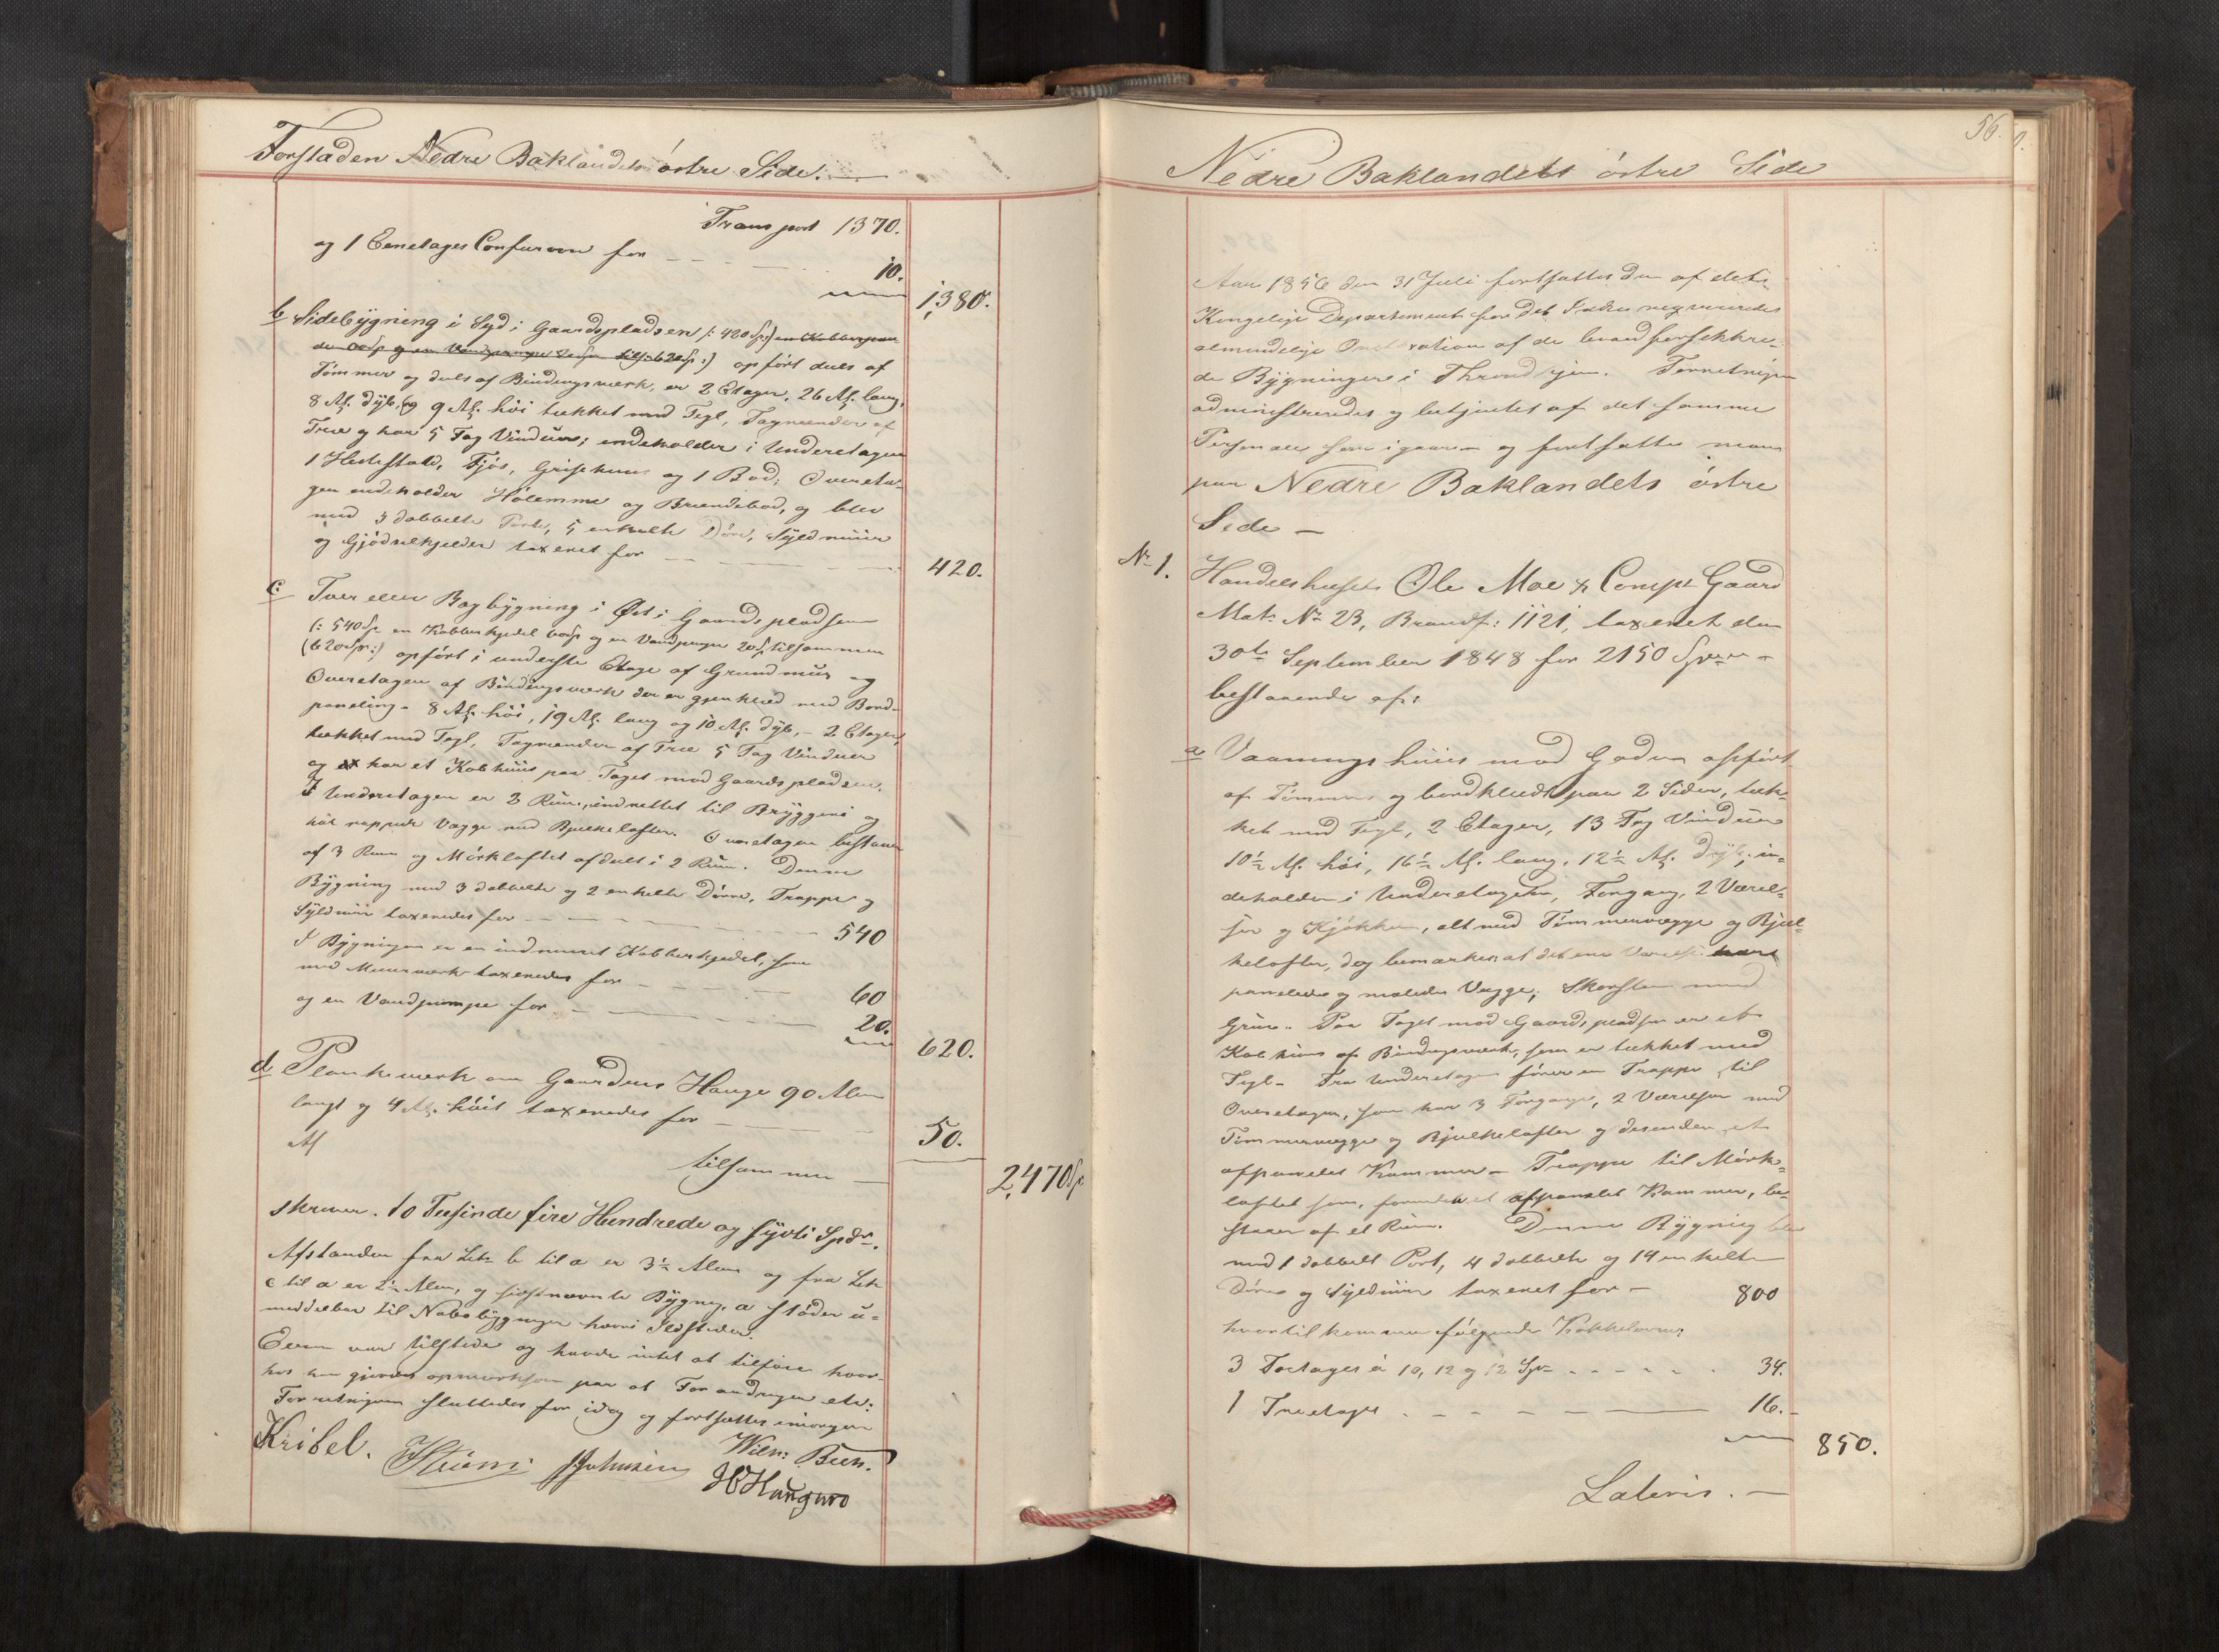 Forstaden Nedre Baklandets östre Side.
Transport 1370.
og 1 Eenetages Comfuroun for 10.
1,380.
b Sidebÿgning i Sÿd i Gaardspladsen /: 420 Sp:/ en Kobberpan
de 60 Sp og en Vandpumpe 20 Sp tils: 620 Sp :) opfört deels af
Tömmer og deels af Bindingsværk, er 2 Etager, 26 Al. lang,
8 Al. dÿb, og 9 Al. höi tækket med Tegl, Tagrænder af
Træ og har 5 Fag Vinduer; indeholder i Underetagen
1 Hestestald, Fjös, Grisehuus og 1 Bod; Overeta-
gen indeholder Hölemme og Brændebod, og blev
med 3 dobbelte Porte, 5 enkelte Döre, Sÿldmuur
og Gjödselkjelder taxeret for 420.
c Tver eller Bagbÿgning i Öst i Gaardspladsen
(: 540 Sp en Kobberkjedel 60 Sp og en Vandpumpe 20 Sp tilsammen
(620 Sp :) opfört i underste Etage af Grundmuur og
Overetagen af Bindingsværk der er gjenklæd med Bord-
paneling - 8 Al. höi, 19 Al. lang og 10 Al. dÿb, - 2 Etager,
tækket med Tegl, Tagrænder af Træ 5 Fag Vinduer
og har et Kobhuus paa Taget mod Gaardspladsen.
I Underetagen er 3 Rum, indrettet til Brÿggeri og
har rappede Vægge med Bjelkelofter. Overetagen bestaaer
af 3 Rum og Mörkloftet afdeelt i 2 Rum. Denne
Bÿgning med 3 dobbelte og 2 enkelte Döre, Trapper og
Sÿldmuur taxeredes for 540
I Bÿgningen er en indmuret Kobberkjedel, som
med Muurværk taxeredes for 60
og en Vandpumpe for 20.
620.
d Plankeværk om Gaardens Hauge 90 Alen
langt og 4 Al. höit taxeredes for 50.
Al
tilsammen 2,470 Sp
skriver to Tusinde fire Hundrede og sÿvti Spdr.
Afstanden fra Litr b til a er 3½ Alen og fra Litr
c til a er 2½ Alen, og sidstnævnte Bÿgning, a stöder u-
middelbar til Nabobÿgninger hvori Ildsteder.
Eieren var tilstede og havde intet at tilföie hvor-
hos han gjordes opmærksom paa at Forandringer etc:
Forretningen sluttedes for idag og fortsættes imorgen
Kribel. JJohnsen Wilm: Buch.
56.
Nedre Baklandets östre Side
Aar 1856 den 31 Juli fortsattes den af det
Kongelige Departement for det Indre requirerede
almindelige Omtaxation af de brandforsikkre-
de Bÿgninger i Throndhjem. Forretningen
administreredes og betjentes af det samme
Personale som igaar - og fortsatte man
paa Nedre Baklandets östre
Side -
No 1. Handelshuset Ole Moe & Compt Gaard
Matr No 23, Brandf: 1121, taxeret den
30te September 1848 for 2150 Spd -
bestaaende af:
a Vaaningshuus mod Gaden opfört
af Tömmer og bordklædt paa 2 Sider, tæk-
ket med Tegl, 2 Etager, 13 Fag Vinduer
10½ Al. höi, 16½ Al. lang, 12½ Al. dÿb, in-
deholder i Underetagen, Forgang, 2 Værel-
ser og Kjökken, alt med Tömmervægge og Bjel-
kelofter, dog bemærkes at det ene Værelse har
panelede og malede Vægge; Skorsteen med
Gruv. Paa Taget mod Gaardspladsen er et
Kobhuus af Bindingsværk, som er tækket med
Tegl - Fra Underetagen förer en Trappe til
Overetagen, som har 3 Forgange, 2 Værelser med
Tömmervægge og Bjelkelofter og desuden et
afpanelet Kammer - Trappe til Mörk-
loftet som, foruden et afpanelet Kammer, be-
staaer af et Rum. Denne Bÿgning blev
med 1 dobbelt Port, 4 dobbelte og 14 enkelte
Döre og Sÿldmuur taxeret for - 800
hvortil kommer fölgende Kakkelovne:
3 Toetages á 10, 12 og 12 Spd 34.
1 Treetages 16.
850.
Lateris.